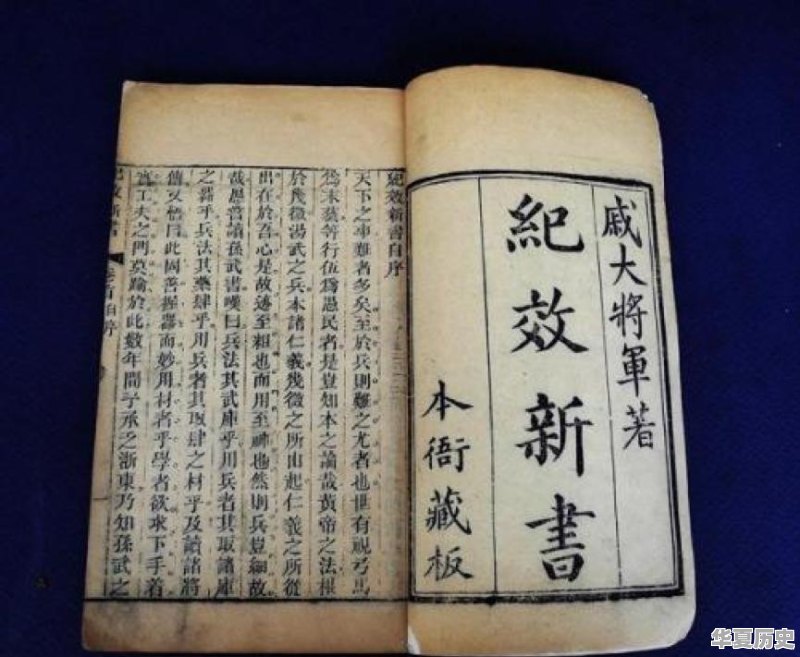 戚大將軍著
紀效新書
本衙藏板
紀效新書自序
天下之事難者多矣至於兵則難之尤者也世有視弓馬
爲末藝等行伍爲愚民者是豈知本之論哉黃帝之法根
於幾微湯武之兵本諸仁義幾微之所由起仁義之所從
出在於吾心是故迹至粗也而用至神也然則兵豈細故
哉愚嘗讀孫武書嘆曰兵法其武庫乎用兵者其取諸庫
之器乎兵法其藥肆乎用兵者其取肆之材乎及讀諸將
傳又悟曰此固善握器而妙用材者乎學者欲求下手着
實工夫之門莫踰於此數年間予承乏浙東乃知孫武之
紀效新書
自序
华夏历史